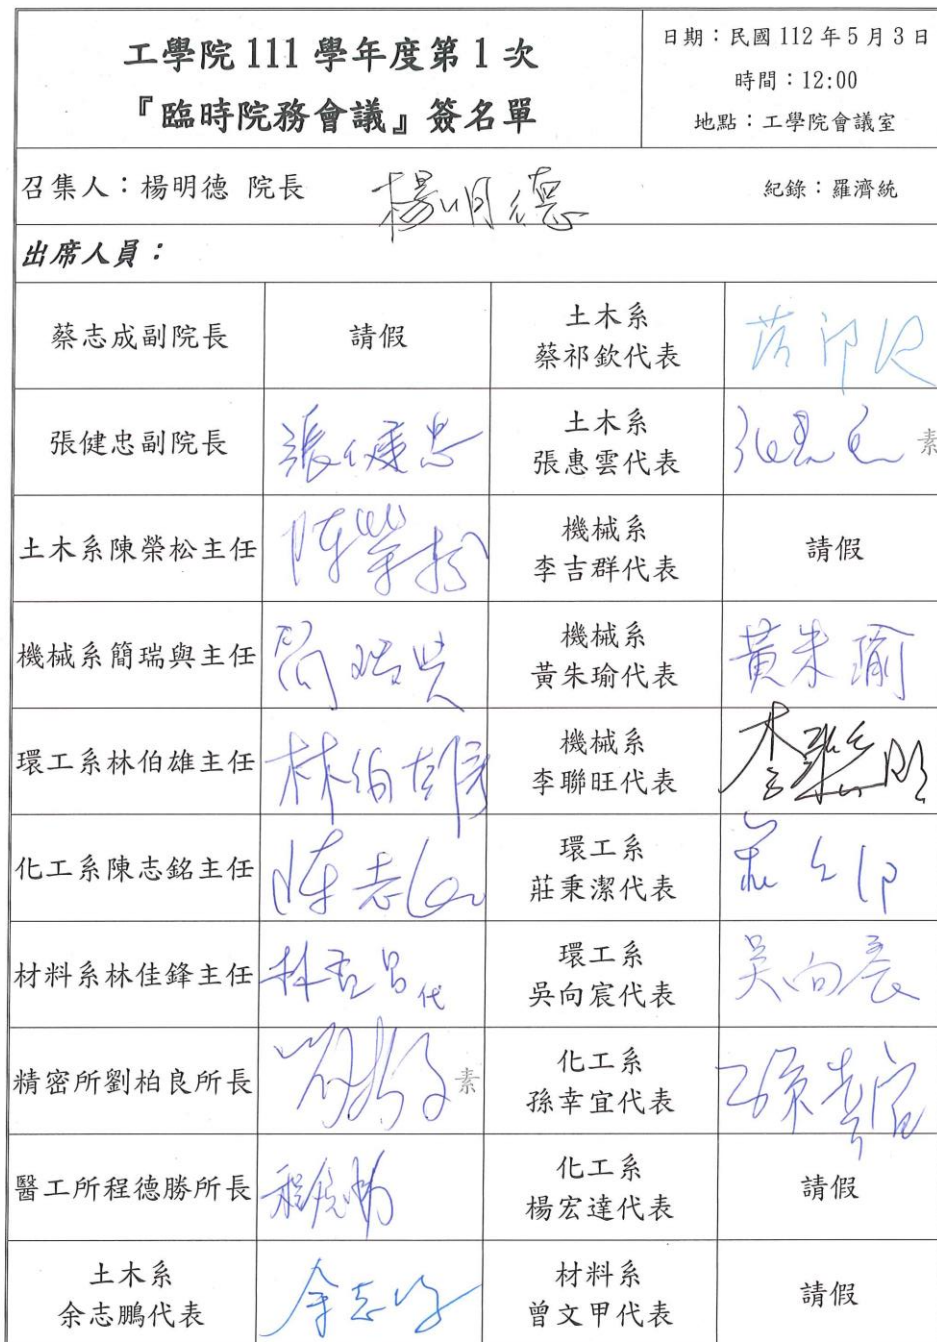 工學院 111 學年度第 1 次
『臨時院務會議』簽名單
日期：民國 112 年 5 月 3 日
時間：12:00
地點：工學院會議室
召集人：楊明德 院長 楊明德 紀錄：羅濟統
出席人員：
蔡志成副院長 請假
土木系
蔡祁欽代表
張健忠副院長 張健忠
土木系
張惠雲代表 素
土木系陳榮松主任 陳榮松
機械系
李吉群代表 請假
機械系簡瑞與主任 簡瑞與
機械系
黃朱瑜代表 黃朱瑜
環工系林伯雄主任 林伯雄
機械系
李聯旺代表 李聯旺
化工系陳志銘主任 陳志銘
環工系
莊秉潔代表
材料系林佳鋒主任 代
環工系
吳向宸代表 吳向宸
精密所劉柏良所長 素
化工系
孫幸宜代表 孫幸宜
醫工所程德勝所長 程德勝
化工系
楊宏達代表 請假
土木系
余志鵬代表 余志鵬
材料系
曾文甲代表 請假